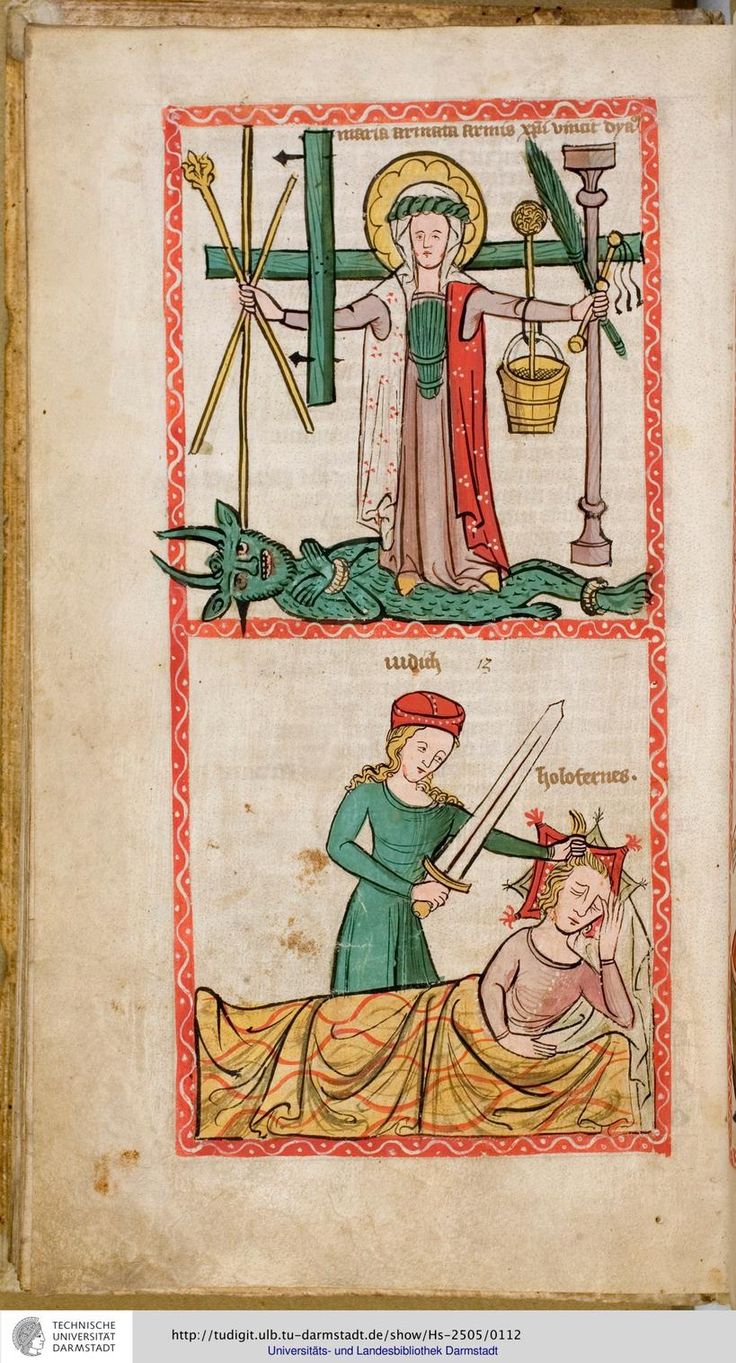 maria armata armis xpi vincit dya
iudich 12
holofernes.
TECHNISCHE
UNIVERSITÄT
DARMSTADT
http://tudigit.ulb.tu-darmstadt.de/show/Hs-2505/0112
Universitäts- und Landesbibliothek Darmstadt